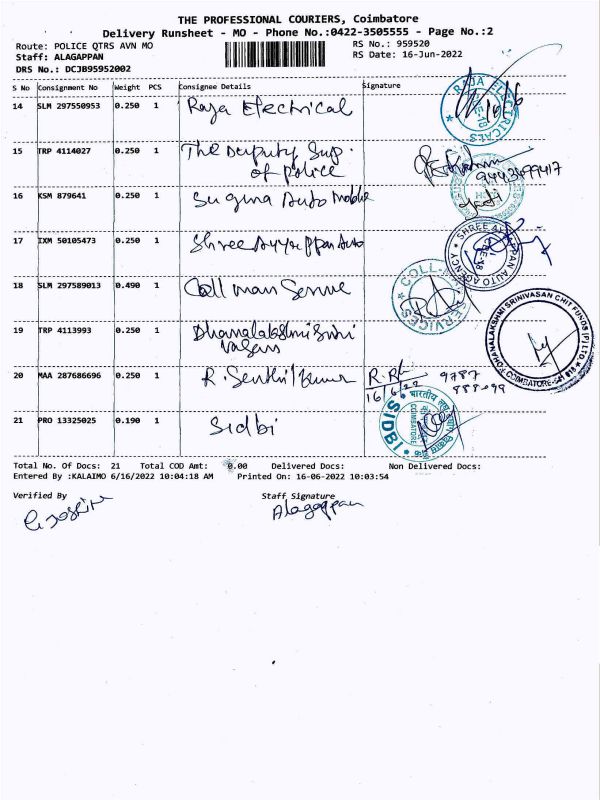 THE PROFESSIONAL COURIERS, Coimbatore
Delivery Runsheet - MO - Phone No.:0422-3505555 - Page No.:2
Route: POLICE QTRS AVN MO
RS No.: 959520
Staff: ALAGAPPAN
RS Date: 16-Jun-2022
DRS No.: DCJB95952002
S No Consignment No Weight PCS Consignee Details Signature
14 SLM 297550953 0.250 1 Raja Electrical
RAJA ELECTRICALS
16/6
15 TRP 4114027 0.250 1 The Deputy Sup.
of police
9443499417
16 KSM 879641 0.250 1 Suguna Auto Mobile
17 IXM 50105473 0.250 1 Shree Ayyappan Auto
SHREE AYYAPPAN AUTO AGENCY
CBE-18
18 SLM 297589013 0.490 1 Call man Servie
19 TRP 4113993 0.250 1 Dhanalakshmi Srini
vasan
DHANALAKSHMI SRINIVASAN CHIT FUNDS (P) LTD
COIMBATORE-641 018
20 MAA 287686696 0.250 1 R. Senthil Kumar
16/6/22
9787
21 PRO 13325025 0.190 1 Sidbi
SIDBI
COIMBATORE
Total No. Of Docs: 21 Total COD Amt: 0.00 Delivered Docs: Non Delivered Docs:
Entered By :KALAIMO 6/16/2022 10:04:18 AM Printed On: 16-06-2022 10:03:54
Verified By Staff Signature
Alagappan